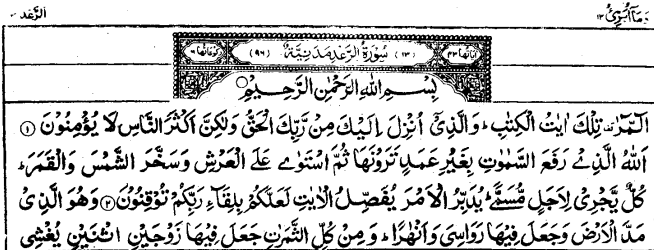 وَمَآ اُبَرِّئُ ١٣ الرَّعْد
اٰيَاتُهَا ٤٣ (١٣) سُوْرَةُ الرَّعْدِ مَدَنِيَّةٌ (٩٦) رُكُوْعَاتُهَا ٦
بِسْمِ اللّٰهِ الرَّحْمٰنِ الرَّحِيْمِ
الٓمّٓرٰ تِلْكَ اٰيٰتُ الْكِتٰبِ ؕ وَالَّذِىْٓ اُنْزِلَ اِلَيْكَ مِنْ رَّبِّكَ الْحَقُّ وَلٰكِنَّ اَكْثَرَ النَّاسِ لَا يُؤْمِنُوْنَ ١
اَللّٰهُ الَّذِىْ رَفَعَ السَّمٰوٰتِ بِغَيْرِ عَمَدٍ تَرَوْنَهَا ثُمَّ اسْتَوٰى عَلَى الْعَرْشِ وَسَخَّرَ الشَّمْسَ وَالْقَمَرَ ؕ
كُلٌّ يَّجْرِىْ لِاَجَلٍ مُّسَمًّى ؕ يُدَبِّرُ الْاَمْرَ يُفَصِّلُ الْاٰيٰتِ لَعَلَّكُمْ بِلِقَآءِ رَبِّكُمْ تُوْقِنُوْنَ ٢ وَهُوَ الَّذِىْ
مَدَّ الْاَرْضَ وَجَعَلَ فِيْهَا رَوَاسِىَ وَاَنْهٰرًا ؕ وَمِنْ كُلِّ الثَّمَرٰتِ جَعَلَ فِيْهَا زَوْجَيْنِ اثْنَيْنِ يُغْشِى